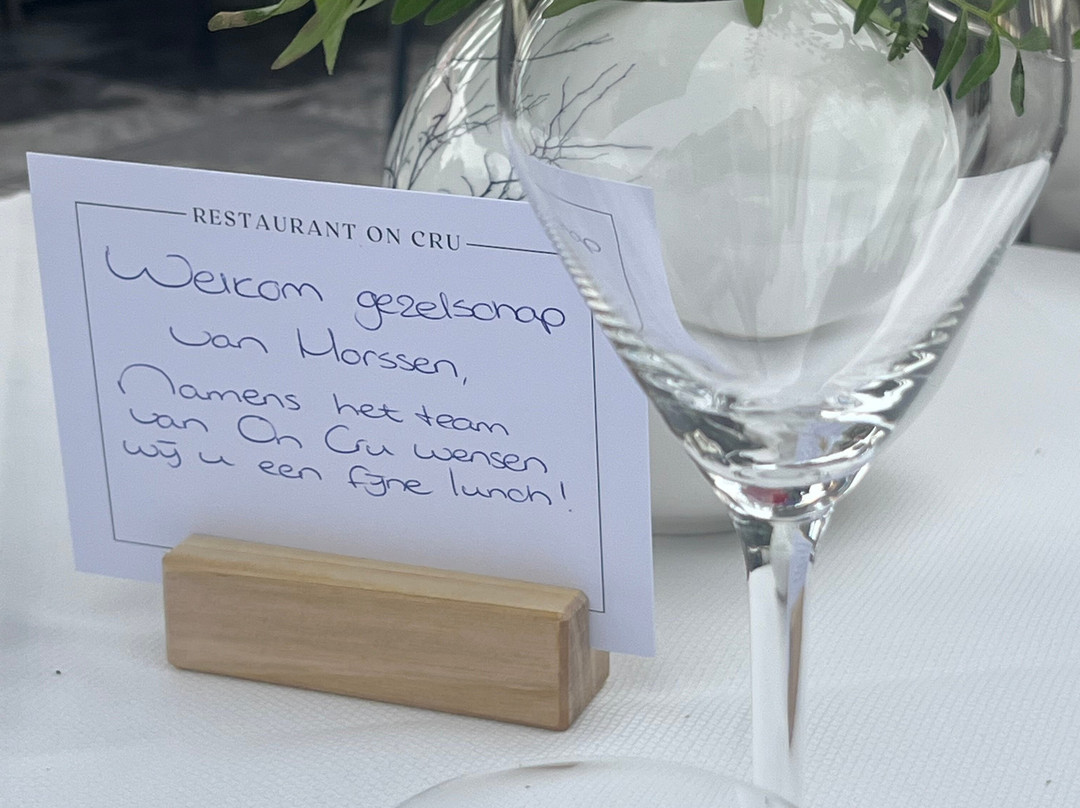 RESTAURANT ON CRU
Welkom gezelschap
van Horssen,
Namens het team
van On Cru wensen
wij u een fijne lunch!